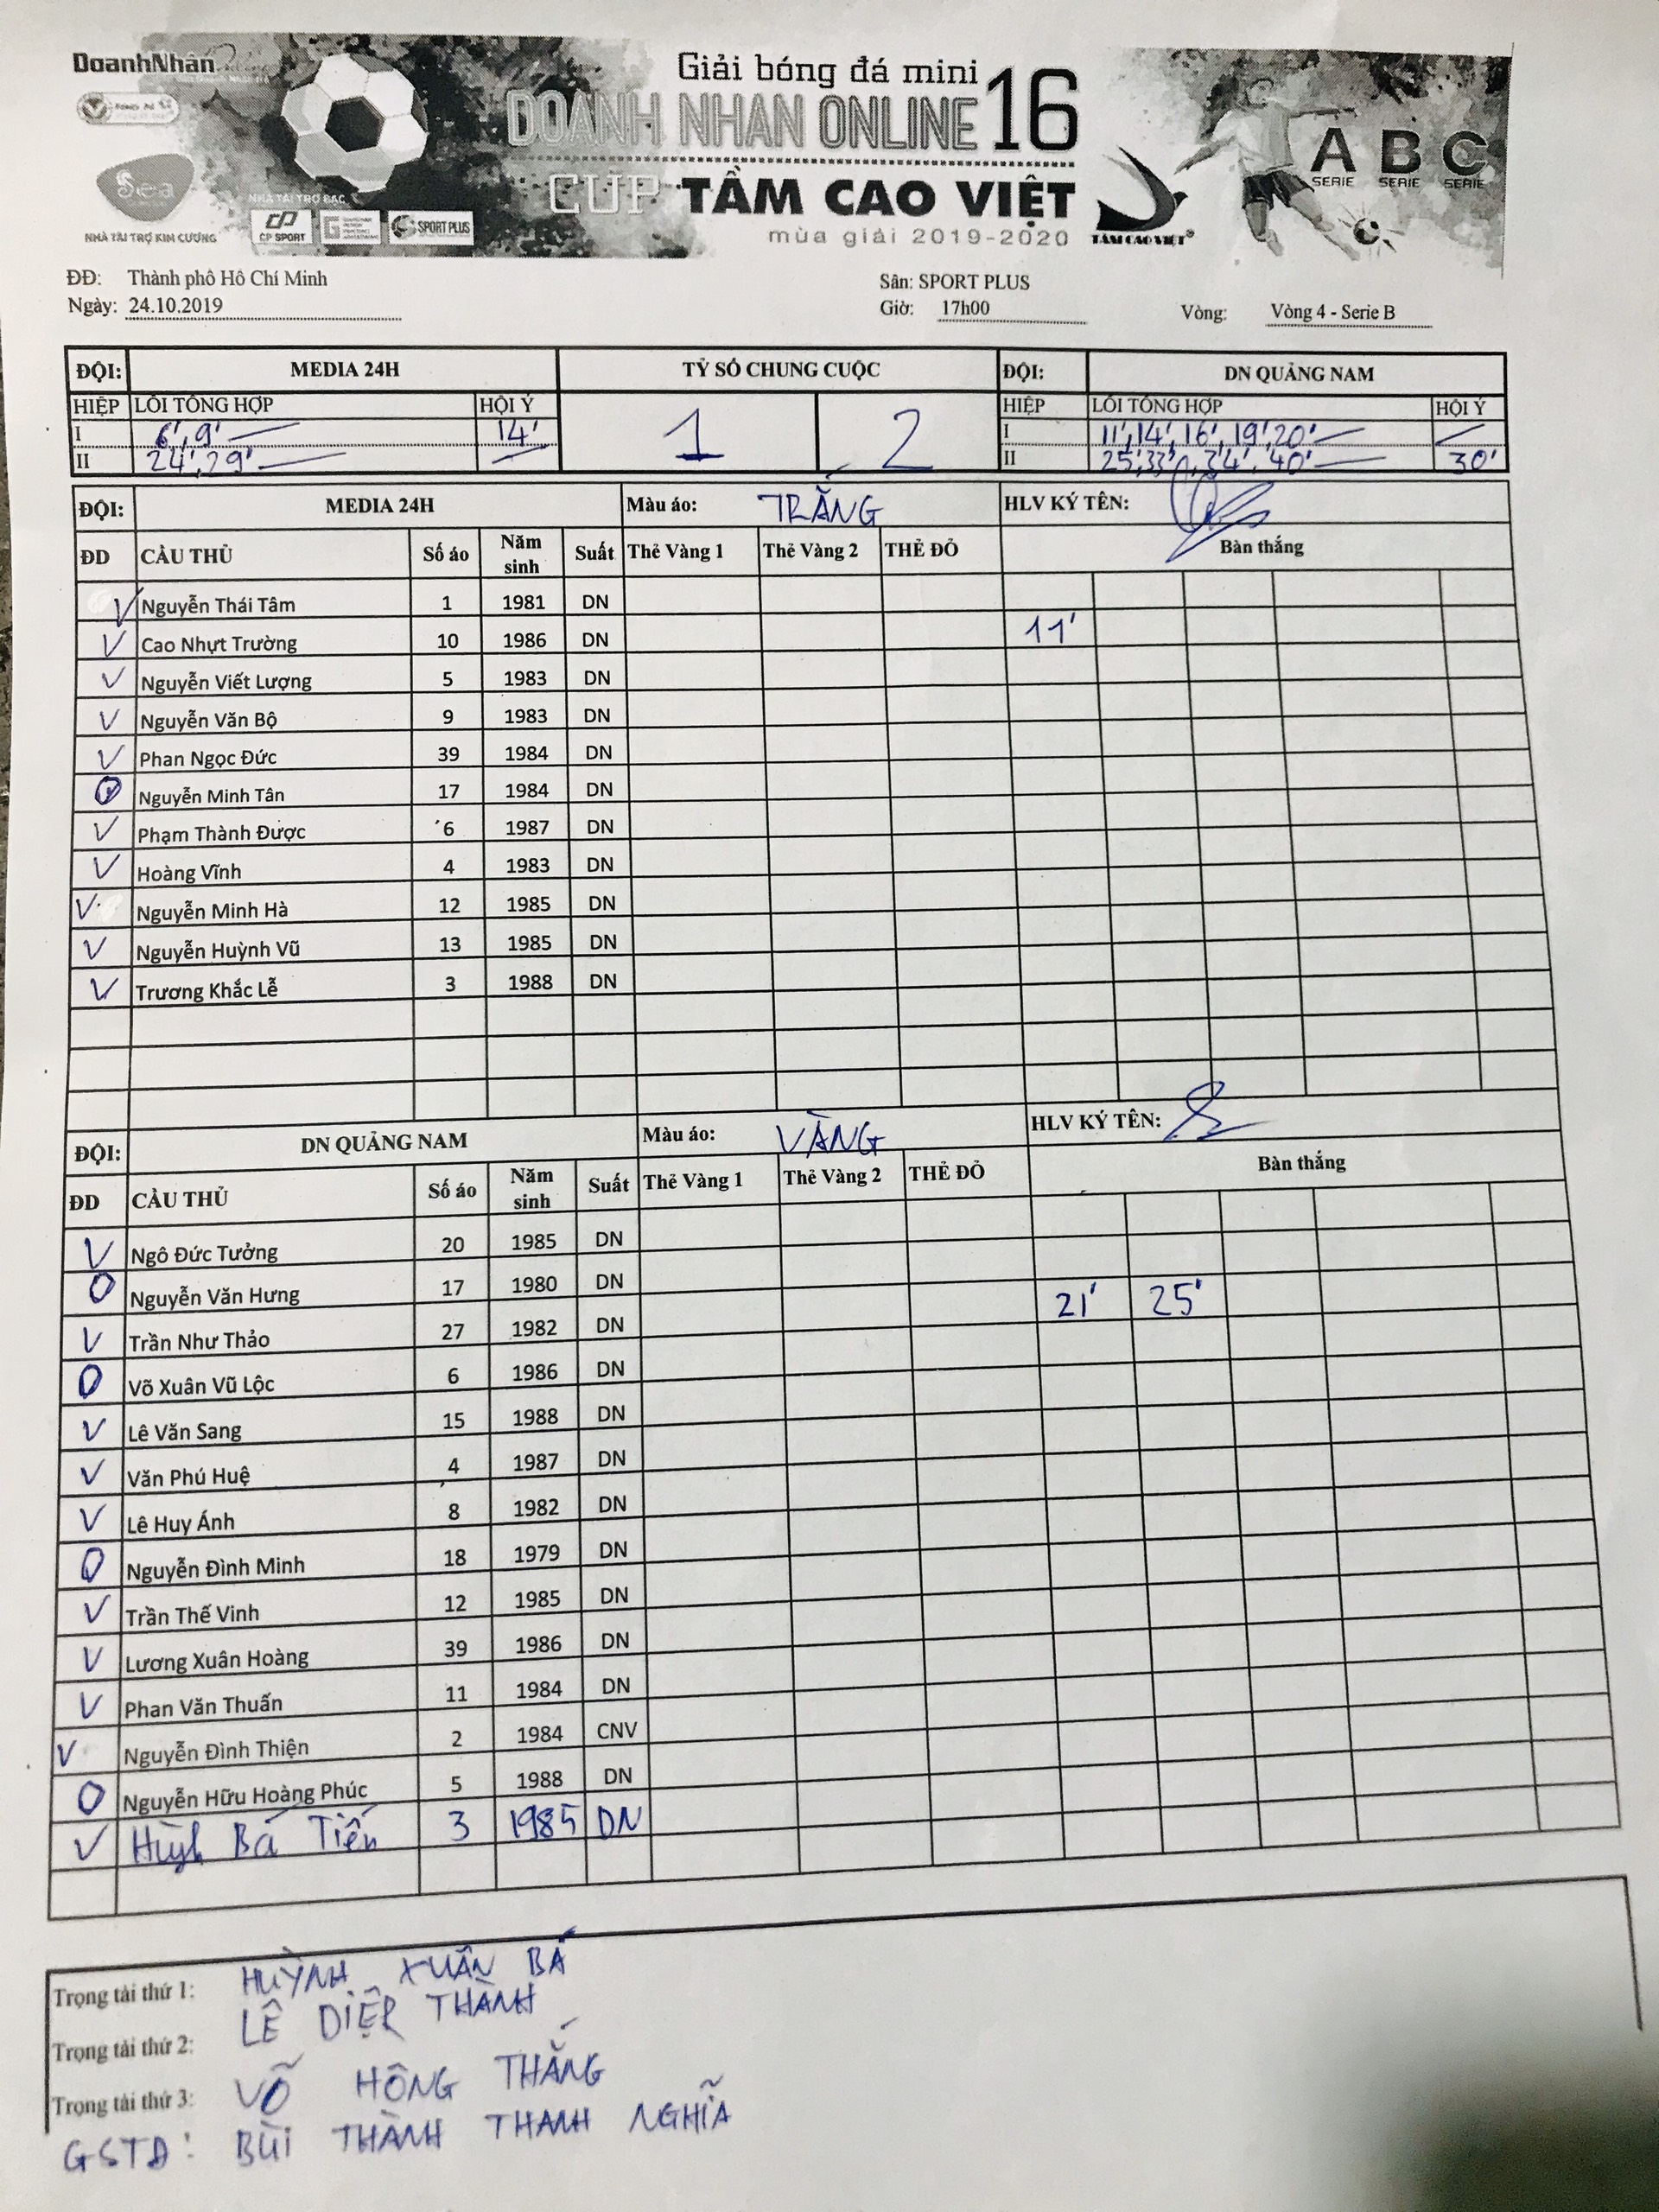 DoanhNhân
Giải bóng đá mini
DOANH NHAN ONLINE 16
CUP TẦM CAO VIỆT
mùa giải 2019-2020
Sea
NHÀ TÀI TRỢ KIM CƯƠNG
NHÀ TÀI TRỢ BẠC
CP SPORT
SPORT PLUS
TẦM CAO VIỆT®
A B C
SERIE SERIE SERIE
ĐĐ: Thành phô Hô Chí Minh Sân: SPORT PLUS
Ngày: 24.10.2019 Giờ: 17h00 Vòng: Vòng 4 - Serie B
ĐỘI: MEDIA 24H TỶ SỐ CHUNG CUỘC ĐỘI: DN QUẢNG NAM
HIỆP LỖI TỔNG HỢP HỘI Ý 1 2 HIỆP LỖI TỔNG HỢP HỘI Ý
I 6', 9' 14' I 11', 14', 16', 19', 20'
II 24', 29' II 25', 33', 34', 40' 30'
ĐỘI: MEDIA 24H Màu áo: TRẮNG HLV KÝ TÊN:
ĐD CẦU THỦ Số áo Năm sinh Suất Thẻ Vàng 1 Thẻ Vàng 2 THẺ ĐỎ Bàn thắng
V Nguyễn Thái Tâm 1 1981 DN
V Cao Nhựt Trường 10 1986 DN 11'
V Nguyễn Viết Lượng 5 1983 DN
V Nguyễn Văn Bộ 9 1983 DN
V Phan Ngọc Đức 39 1984 DN
Nguyễn Minh Tân 17 1984 DN
V Phạm Thành Được 6 1987 DN
V Hoàng Vĩnh 4 1983 DN
V Nguyễn Minh Hà 12 1985 DN
V Nguyễn Huỳnh Vũ 13 1985 DN
V Trương Khắc Lễ 3 1988 DN
ĐỘI: DN QUẢNG NAM Màu áo: VÀNG HLV KÝ TÊN:
ĐD CẦU THỦ Số áo Năm sinh Suất Thẻ Vàng 1 Thẻ Vàng 2 THẺ ĐỎ Bàn thắng
V Ngô Đức Tưởng 20 1985 DN
O Nguyễn Văn Hưng 17 1980 DN 21' 25'
V Trần Như Thảo 27 1982 DN
O Võ Xuân Vũ Lộc 6 1986 DN
V Lê Văn Sang 15 1988 DN
V Văn Phú Huệ 4 1987 DN
V Lê Huy Ánh 8 1982 DN
O Nguyễn Đình Minh 18 1979 DN
V Trần Thế Vinh 12 1985 DN
V Lương Xuân Hoàng 39 1986 DN
V Phan Văn Thuấn 11 1984 DN
V Nguyễn Đình Thiện 2 1984 CNV
O Nguyễn Hữu Hoàng Phúc 5 1988 DN
V Hùynh Bá Tiến 3 1985 DN
Trọng tài thứ 1: HUỲNH XUÂN BÁ
Trọng tài thứ 2: LÊ DIỆP THÀNH
Trọng tài thứ 3: VÕ HỒNG THẮNG
GSTĐ: BÙI THÀNH THANH NGHĨA